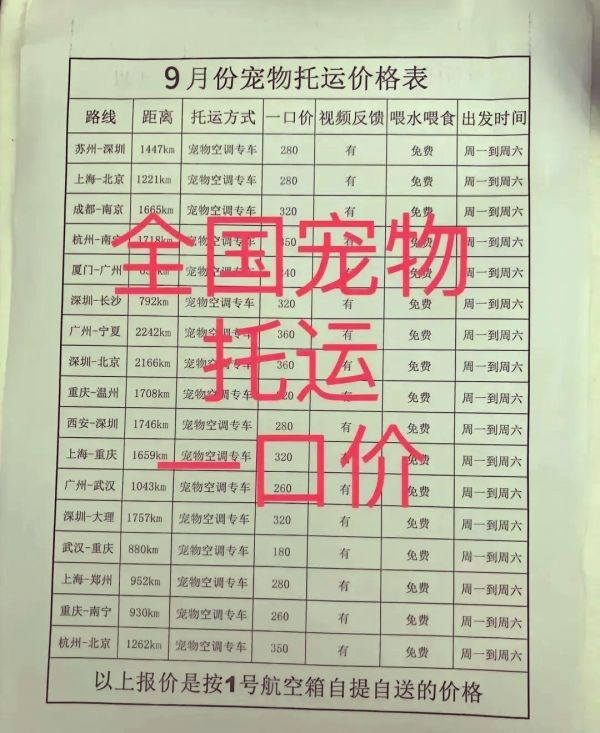 9月份宠物托运价格表
路线 距离 托运方式 一口价 视频反馈 喂水喂食 出发时间
苏州-深圳 1447km 宠物空调专车 280 有 免费 周一到周六
上海-北京 1221km 宠物空调专车 280 有 免费 周一到周六
成都-南京 1665km 宠物空调专车 320 有 免费 周一到周六
1718km 宠物空调专车 350 有 免费 周一到周六
厦门-广州 宠物空调专车 有 免费 周一到周六
深圳-长沙 792km 宠物空调专车 320 有 免费 周一到周六
广州-宁夏 2242km 宠物空调专车 360 有 免费 周一到周六
深圳-北京 2166km 宠物空调专车 360 有 免费 周一到周六
重庆-温州 1708km 宠物空调专车 有 免费 周一到周六
西安-深圳 1746km 宠物空调专车 280 有 免费 周一到周六
上海-重庆 1659km 宠物空调专车 320 有 免费 周一到周六
广州-武汉 1043km 宠物空调专车 260 有 免费 周一到周六
深圳-大理 1757km 宠物空调专车 320 有 免费 周一到周六
武汉-重庆 880km 宠物空调专车 180 有 免费 周一到周六
上海-郑州 952km 宠物空调专车 280 有 免费 周一到周六
重庆-南宁 930km 宠物空调专车 260 有 免费 周一到周六
杭州-北京 1262km 宠物空调专车 350 有 免费 周一到周六
以上报价是按1号航空箱自提自送的价格
全国宠物
托运
一口价